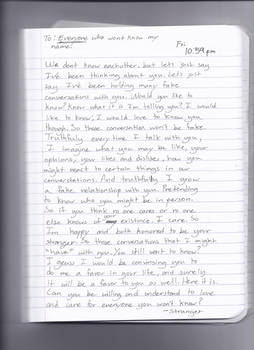 To: Everyone who wont know my
name.
Fri
10:59pm
We dont know eachother. but lets just say
I've been thinking about you. Lets just
say. I've been holding many fake
conversations with you. Would you like to
know? Know what it is Im telling you? I would
like to know; I would love to know you
though. So these conversation won't be fake
Truthfully every time I talk with you,
I imagine what you may be like, your
opinions, your likes and dislikes, how you
might react to certain things in our
conversations. And truthfully I grow
a fake relationship with you. Pretending
to know who you might be in person.
So if you think no one cares or no one
else knows of your existence, I care. So
I'm happy and both honored to be your
stranger. In those conversations that I might
"have" with you. You still want to know?
I geuss I would be convincing you to
do me a favor in your life, and surely
it will be a favor to you as well. Here it is.
Can you be willing and understand to love
and care for everyone you won't know?
~Stranger